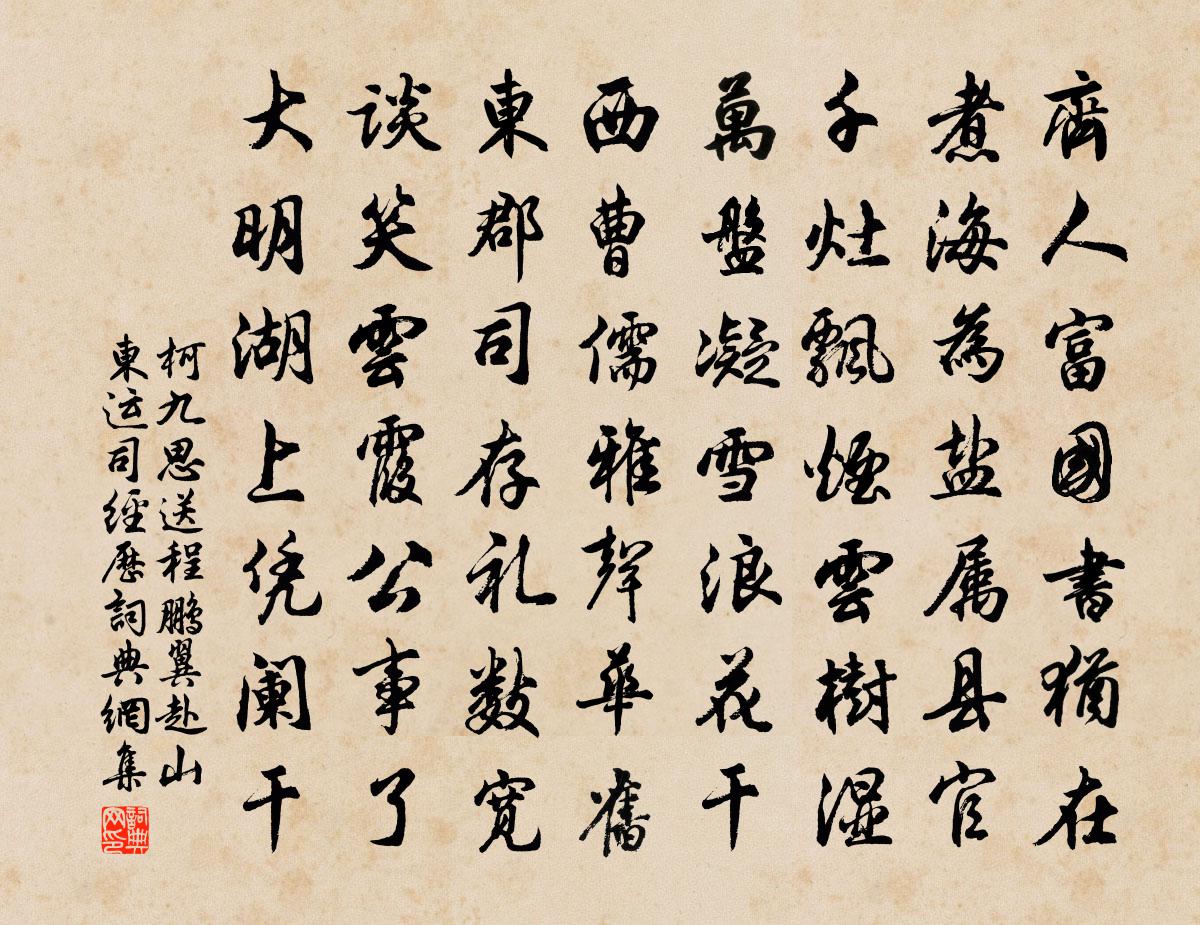 齊人富國書猶在
煮海為盐属县官
千灶飄煙雲樹湿
萬盤凝雪浪花干
西曹儒雅聲華舊
東郡司存礼數寬
談笑雲霞公事了
大明湖上凭阑干
柯九思送程鵬翼赴山
東运司經歷詞典網集
詞典网印